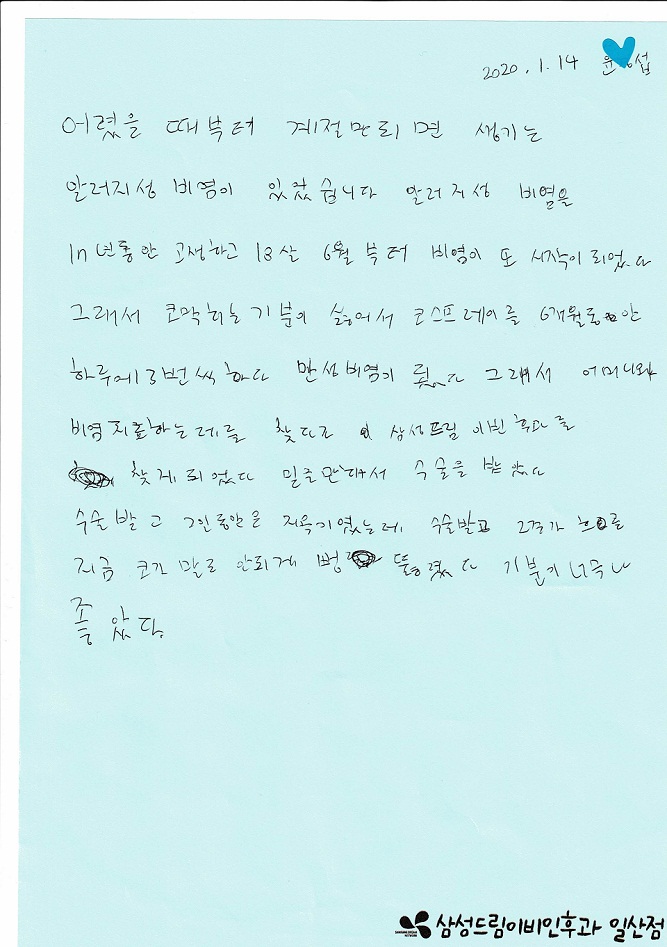 2020. 1. 14 윤 섭
어렸을 때부터 계절만되면 생기는
알러지성 비염이 있었습니다 알러지성 비염을
10년동안 고생하고 13살 6월부터 비염이 또 시작이되었다
그래서 코막히는 기분이 싫어서 코스프레이를 6개월동안
하루에 3번씩 하다 만성비염이 됬다 그래서 어머니와
비염치료하는데를 찾다가 삼성드림 이빈후과를
찾게되었다 믿을만해서 수술을 받았다
수술받고 2인동안은 지옥기였는데 수술받고 2주가 흐으를
지금 코가 말로 안되게 뻥 뚤렸다 기분이 너무나
좋았다.
삼성드림이비인후과 일산점